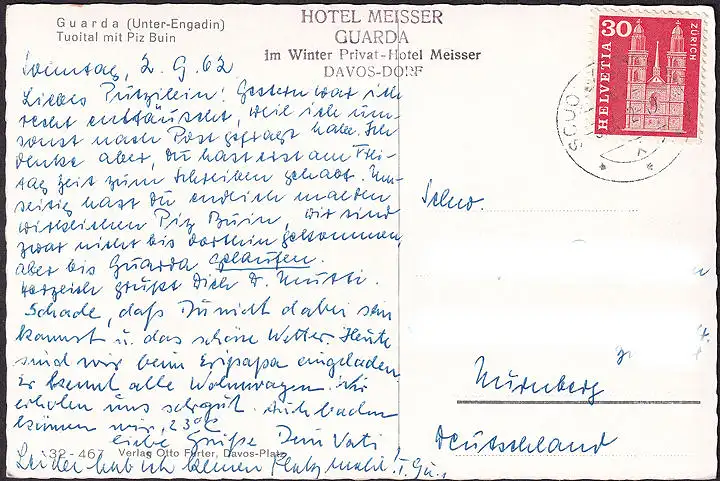 Guarda (Unter-Engadin)
Tuoital mit Piz Buin
HOTEL MEISSER
GUARDA
Im Winter Privat-Hotel Meisser
DAVOS-DORF
30
HELVETIA
ZÜRICH
Sonntag, 2.9.62
Liebes Putzilein! Gestern war ich
recht enttäuscht, weil ich um-
sonst nach Post gefragt habe. Ich
denke aber, Du hast erst am Frei-
tag Zeit zum Schreiben gehabt. Um-
seitig hast du endlich mal den
wirklichen Piz Buin, wir sind
zwar nicht bis dorthin gekommen,
aber bis Guarda gelaufen.
Herzlich grüßt Dich D. Mutti.
Schade, daß Du nicht dabei sein
kannst u. das schöne Wetter. Heute
sind wir beim eingeladen.
Er kennt alle Wohnwagen. Wir
erholen uns sehr gut. Auch baden
können wir, 23°C
liebe Grüße Dein Vati
Leider hab ich keinen Platz mehr!
32-467 Verlag Otto Furter, Davos-Platz
Schw.
Nürnberg
Deutschland